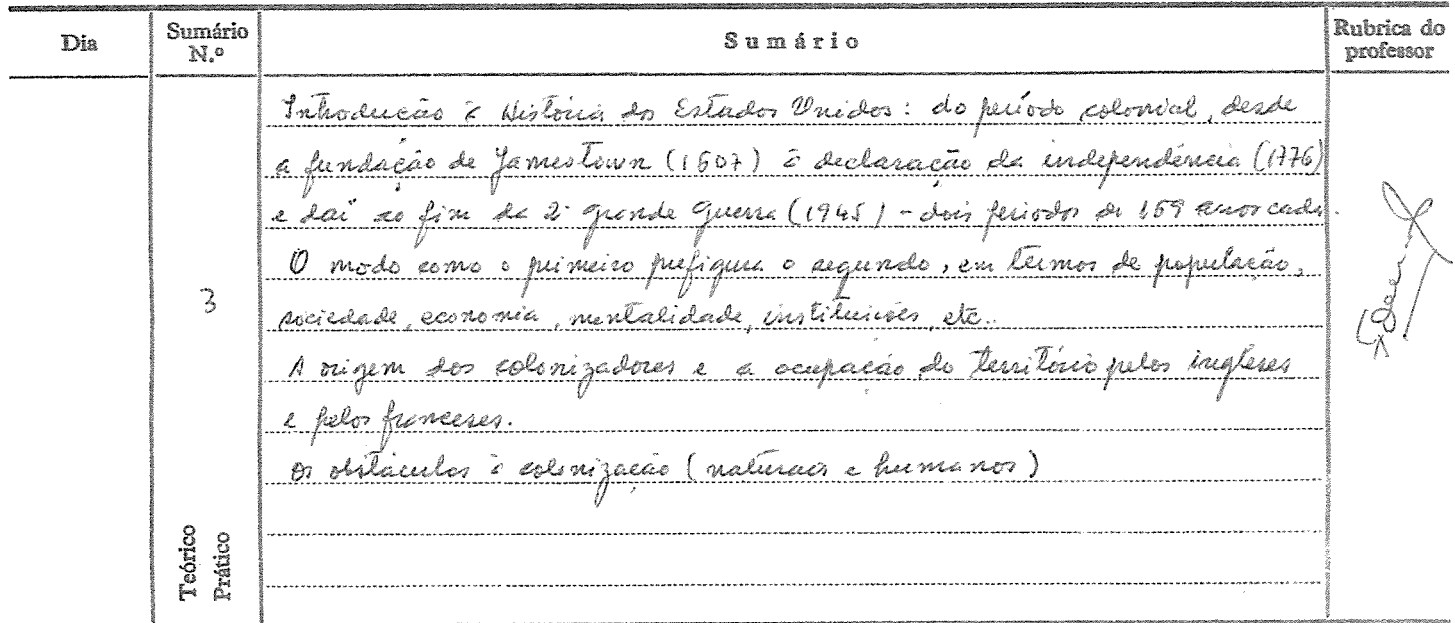 Dia
Sumário N.º
Sumário
Rubrica do professor
Introdução à História dos Estados Unidos: do período colonial, desde
a fundação de Jamestown (1607) à declaração da independência (1776)
e daí ao fim da 2ª grande Guerra (1945) - dois períodos de 169 anos cada.
O modo como o primeiro prefigura o segundo, em termos de população,
3
sociedade, economia, mentalidade, instituições, etc..
A origem dos colonizadores e a ocupação do território pelos ingleses
e pelos franceses.
Os obstáculos à colonização (naturais e humanos)
Teórico
Prático